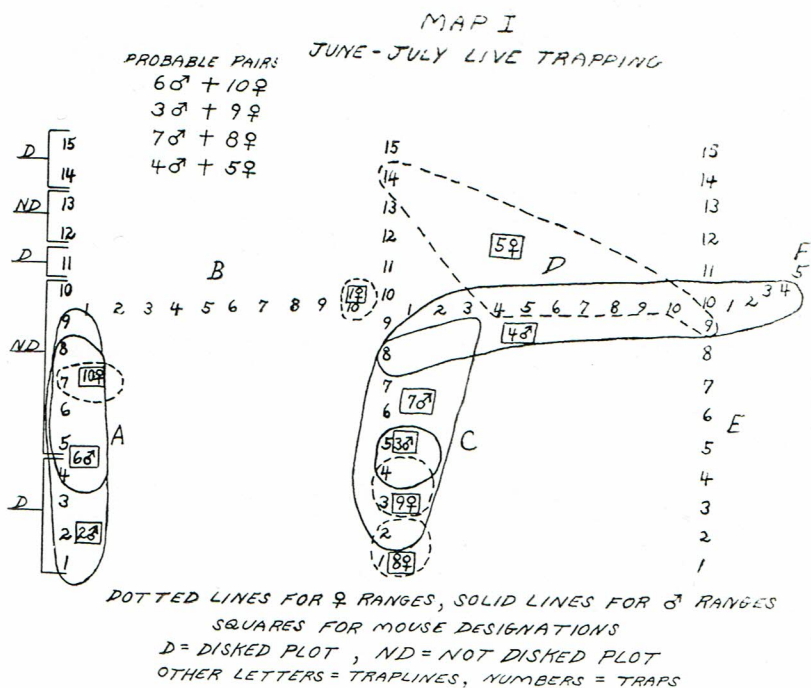 MAP I
JUNE-JULY LIVE TRAPPING
PROBABLE PAIRS
6♂ + 10♀
3♂ + 9♀
7♂ + 8♀
4♂ + 5♀
D
15
14
ND
13
12
D
11
ND
10
9
8
7
6
5
D
4
3
2
1
A
10♀
6♂
2♂
B
1 2 3 4 5 6 7 8 9 10
1♀
15
14
13
12
11
10
9
8
7
6
5
4
3
2
1
C
7♂
3♂
9♀
8♀
5♀
D
1 2 3 4 5 6 7 8 9 10
4♂
15
14
13
12
11
10
9
8
7
6
5
4
3
2
1
E
F
1 2 3 4 5
DOTTED LINES FOR ♀ RANGES, SOLID LINES FOR ♂ RANGES
SQUARES FOR MOUSE DESIGNATIONS
D = DISKED PLOT , ND = NOT DISKED PLOT
OTHER LETTERS = TRAPLINES, NUMBERS = TRAPS